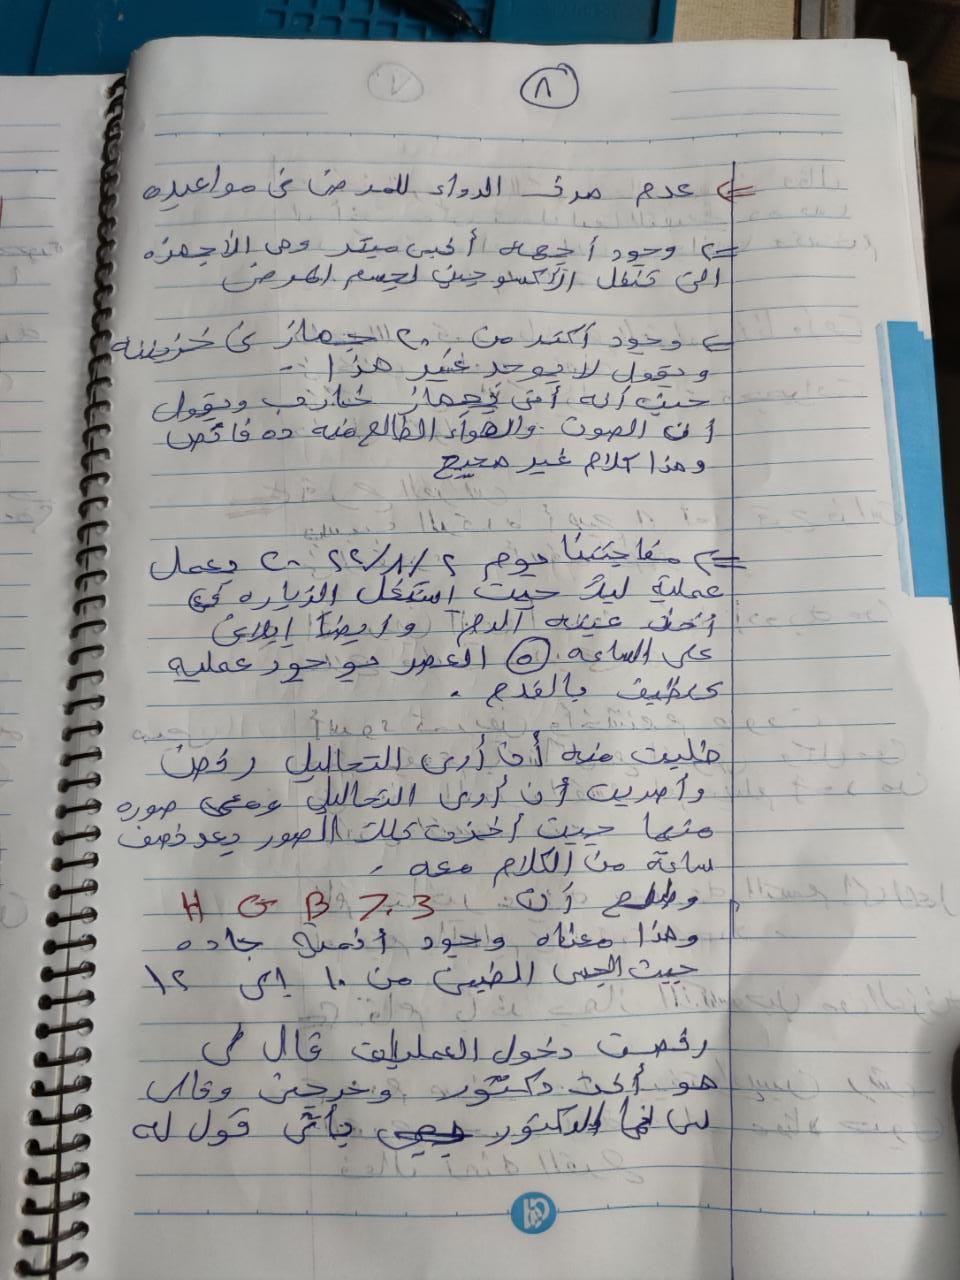 ٨
=> عدم صرف الدواء للمرض فى مواعيده
=> وجود أجهزه أكس ميتر وهى الأجهزه
التى تنقل الأكسوجين لجسم المرض
=> وجود أكثر من ٢٠ جهاز فى خزينته
ويقول لا يوجد غير هذا
حيث أنه أتى بجهاز خارب ويقول
أن الصوت والهواء الطالع منه ده فائض
وهذا كلام غير صحيح
=> مفاجئتنا يوم ٢ / ٨ / ٢٠٢٢ بعمل
عملية ليلاً حيث استغل الزياره فى
أخذ عينه الدم وايضاً إبلاغى
على الساعه ٥ العصر بوجود عمليه
تنظيف بالقدم .
طلبت منه أن أرى التحاليل رفض
وأصريت أن أرى التحاليل ومعى صوره
منها حيث أخذت تلك الصور بعد نصف
ساعة من الكلام معه .
وطلع أن H G B 7.3
وهذا معناه وجود انمية حاده
حيث الجسم الطبيعى من ١٠ إلى ١٢
رفضت دخول العمليات قال لى
هو أنت دكتور وخرجت وقال
لى لما الدكتور يأتى قول له